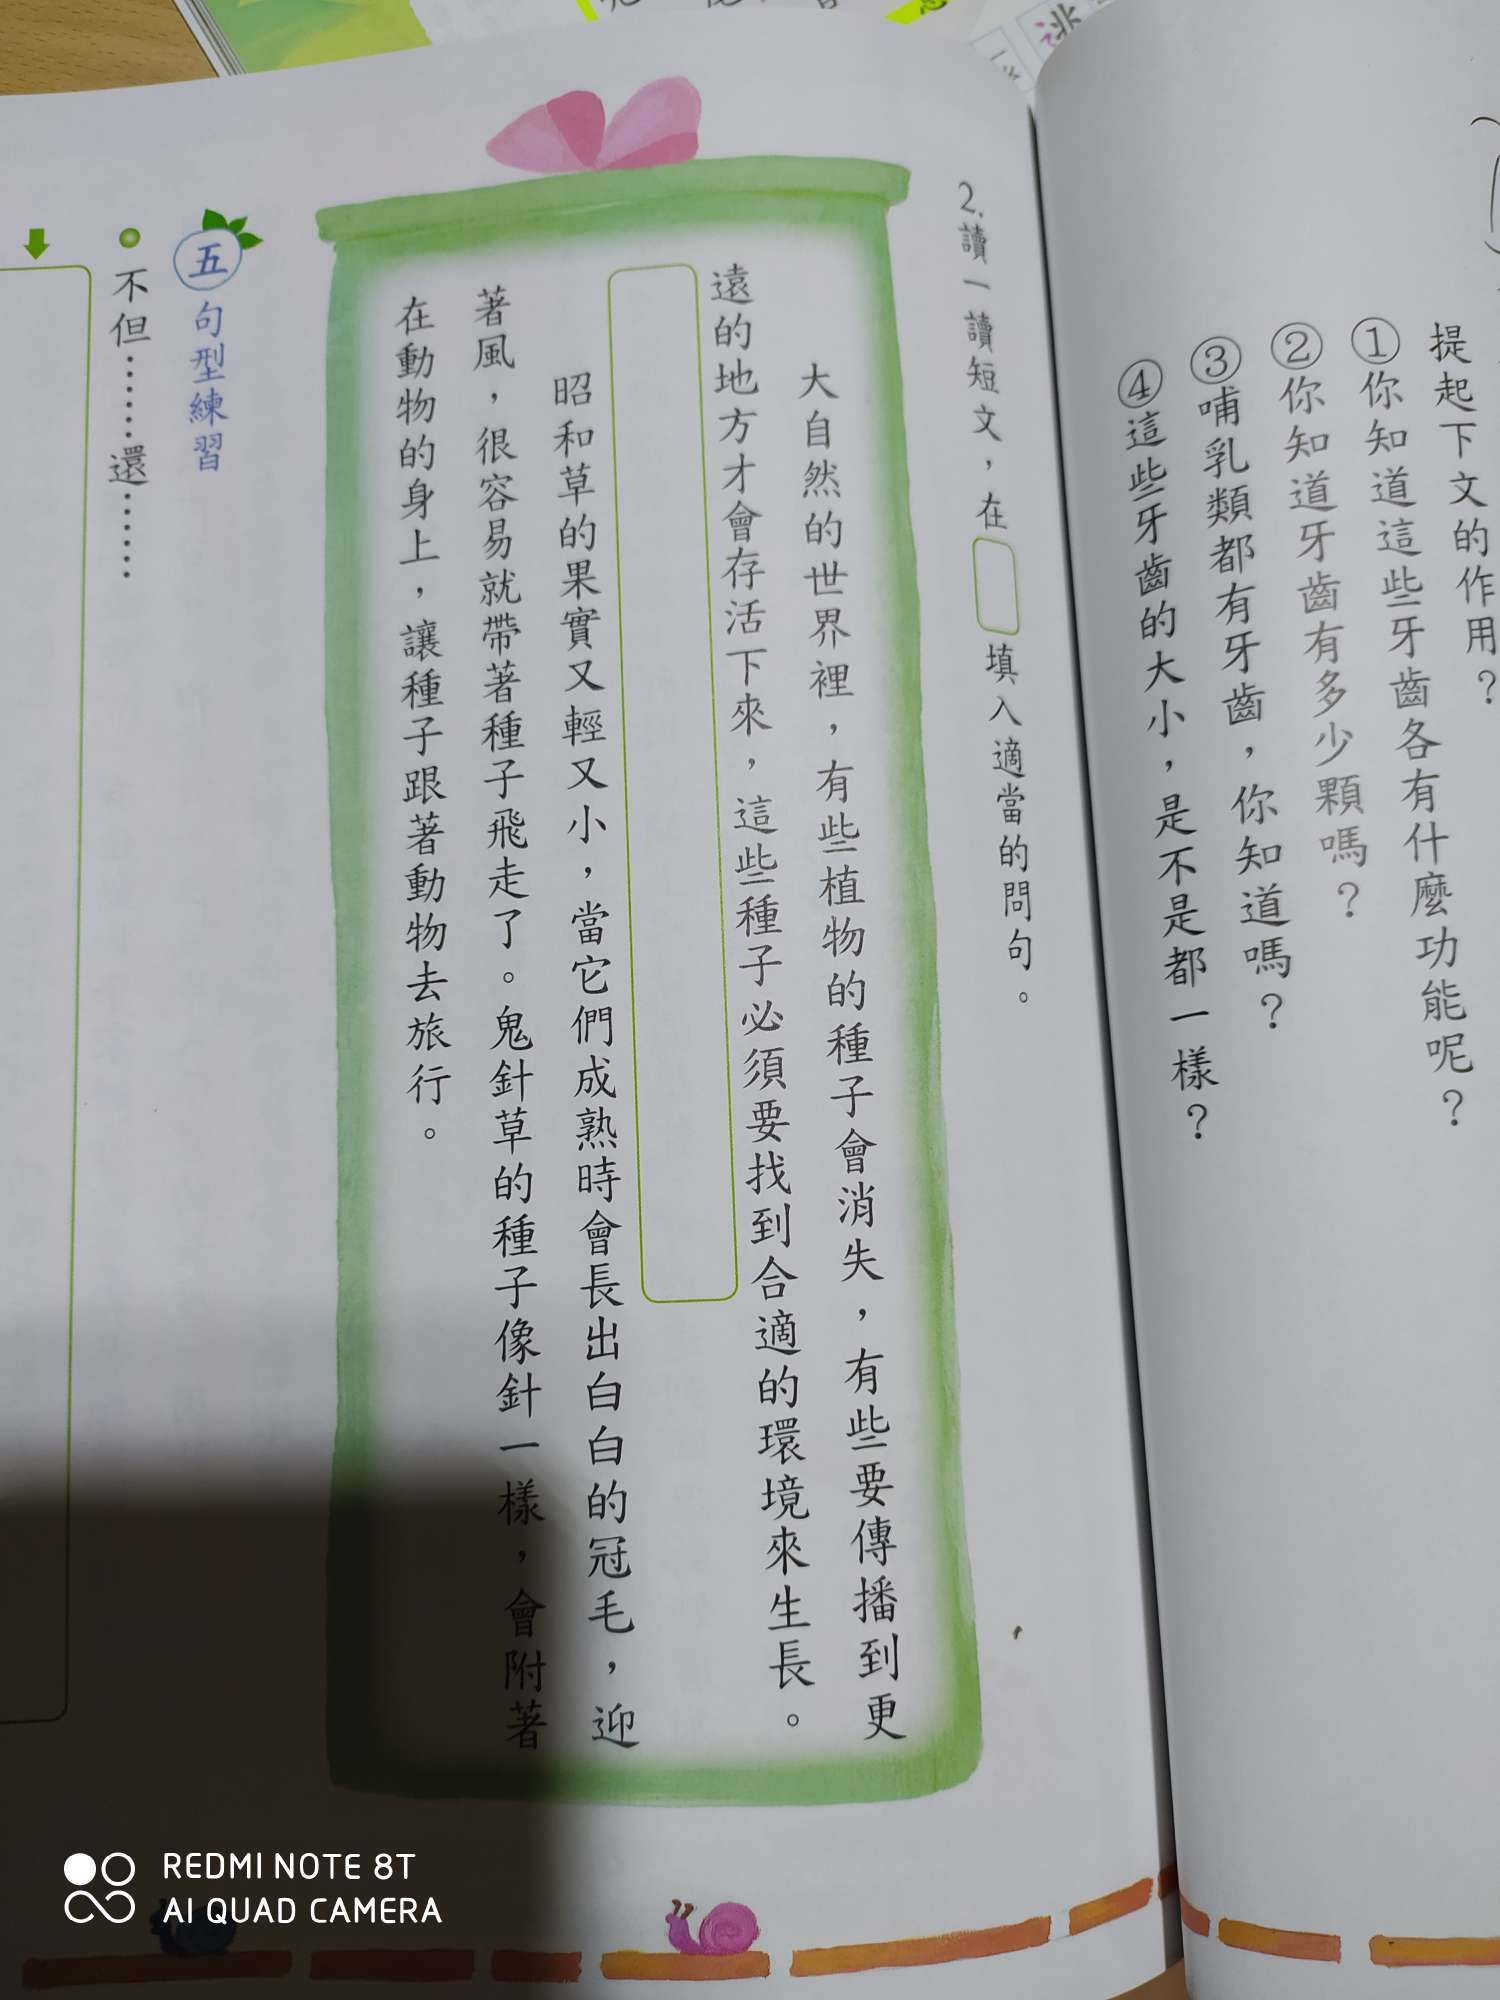 提起下文的作用？
①你知道這些牙齒各有什麼功能呢？
②你知道牙齒有多少顆嗎？
③哺乳類都有牙齒，你知道嗎？
④這些牙齒的大小，是不是都一樣？
2.讀一讀短文，在 填入適當的問句。
大自然的世界裡，有些植物的種子會消失，有些要傳播到更
遠的地方才會存活下來，這些種子必須要找到合適的環境來生長。
昭和草的果實又輕又小，當它們成熟時會長出白白的冠毛，迎
著風，很容易就帶著種子飛走了。鬼針草的種子像針一樣，會附著
在動物的身上，讓種子跟著動物去旅行。
五 句型練習
不但……還……
REDMI NOTE 8T
AI QUAD CAMERA